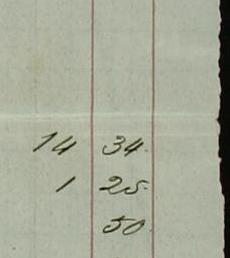 14 34.
1 25.
50.